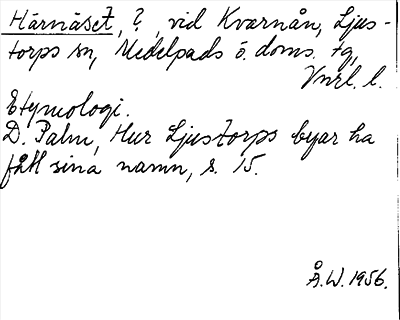 Härnäset, ?, vid Kvarnån, Ljus-
torps sn, Medelpads ö. doms. tg,
Vnrl. l.
Etymologi.
D. Palm, Hur Ljustorps byar ha
fått sina namn, s. 15.
Å.W. 1956.